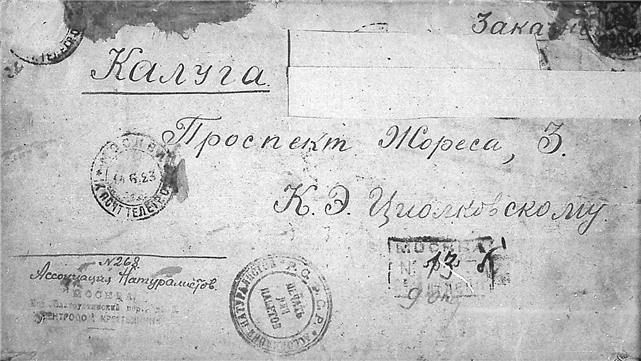 Заказное
Калуга
Проспект Жореса, 3.
К. Э. Циолковскому
МОСКВА
14.6.23
N 268
Ассоциация Натуралистов.
МОСКВА
АССОЦИАЦИЯ НАТУРАЛИСТОВ Р.С.Ф.С.Р.
ПЕЧАТЬ
ДЛЯ
ПАКЕТОВ
МОСКВА
N 13 К